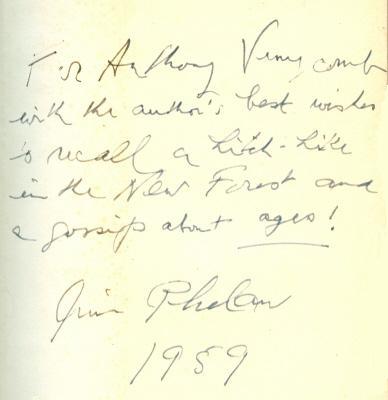 For Anthony Vinycomb
with the author's best wishes
to recall a hitch-hike
in the New Forest and
a gossip about ages!
Jim Phelan
1959